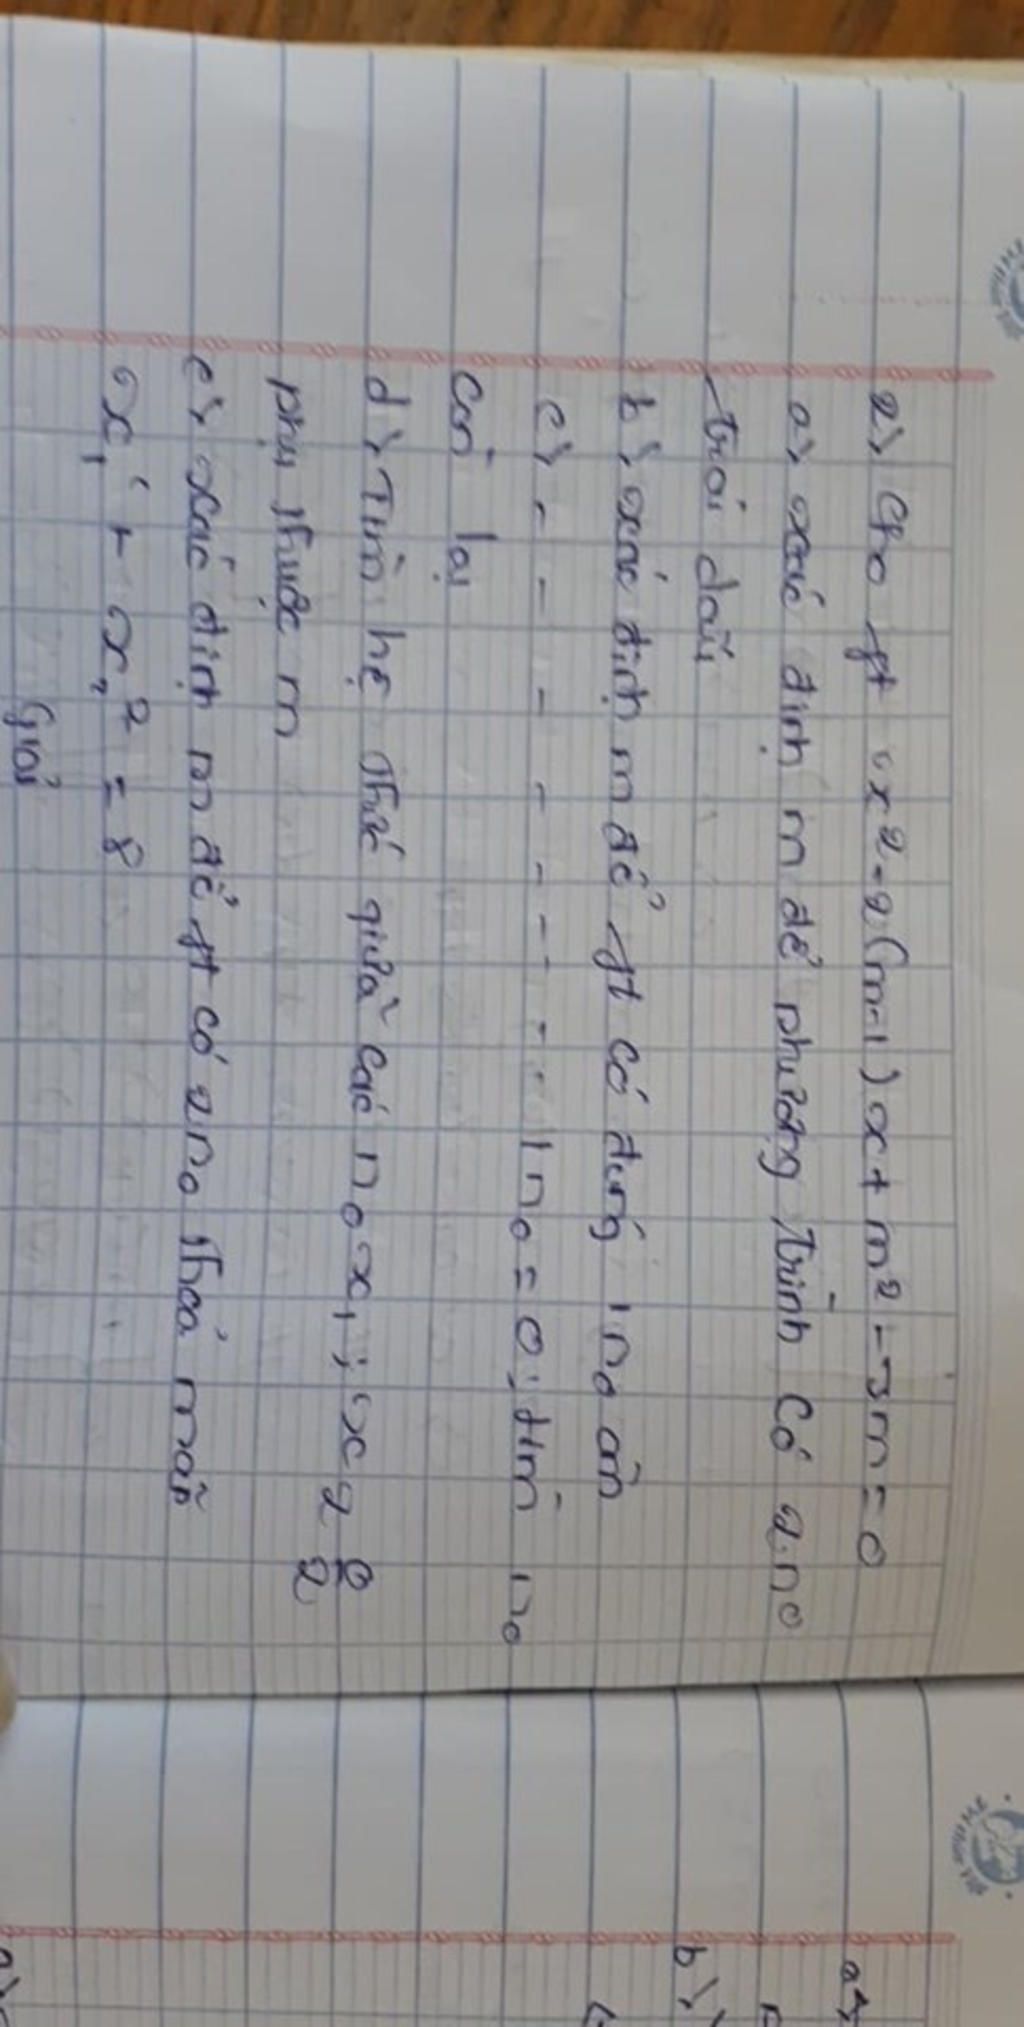 2) Cho pt x² - 2(m-1)x + m² - 3m = 0
a) xác định m để phương trình có 2 n₀
trái dấu
b) xác định m để pt có đúng 1 n₀ âm
c) - - - - - - - 1 n₀ = 0; tìm n₀
còn lại
d) Tìm hệ thức giữa các n₀ x₁; x₂
phụ thuộc m
e) xác định m để pt có 2 n₀ thoả mãn
x₁² + x₂² = 8
Giải
a)
b)